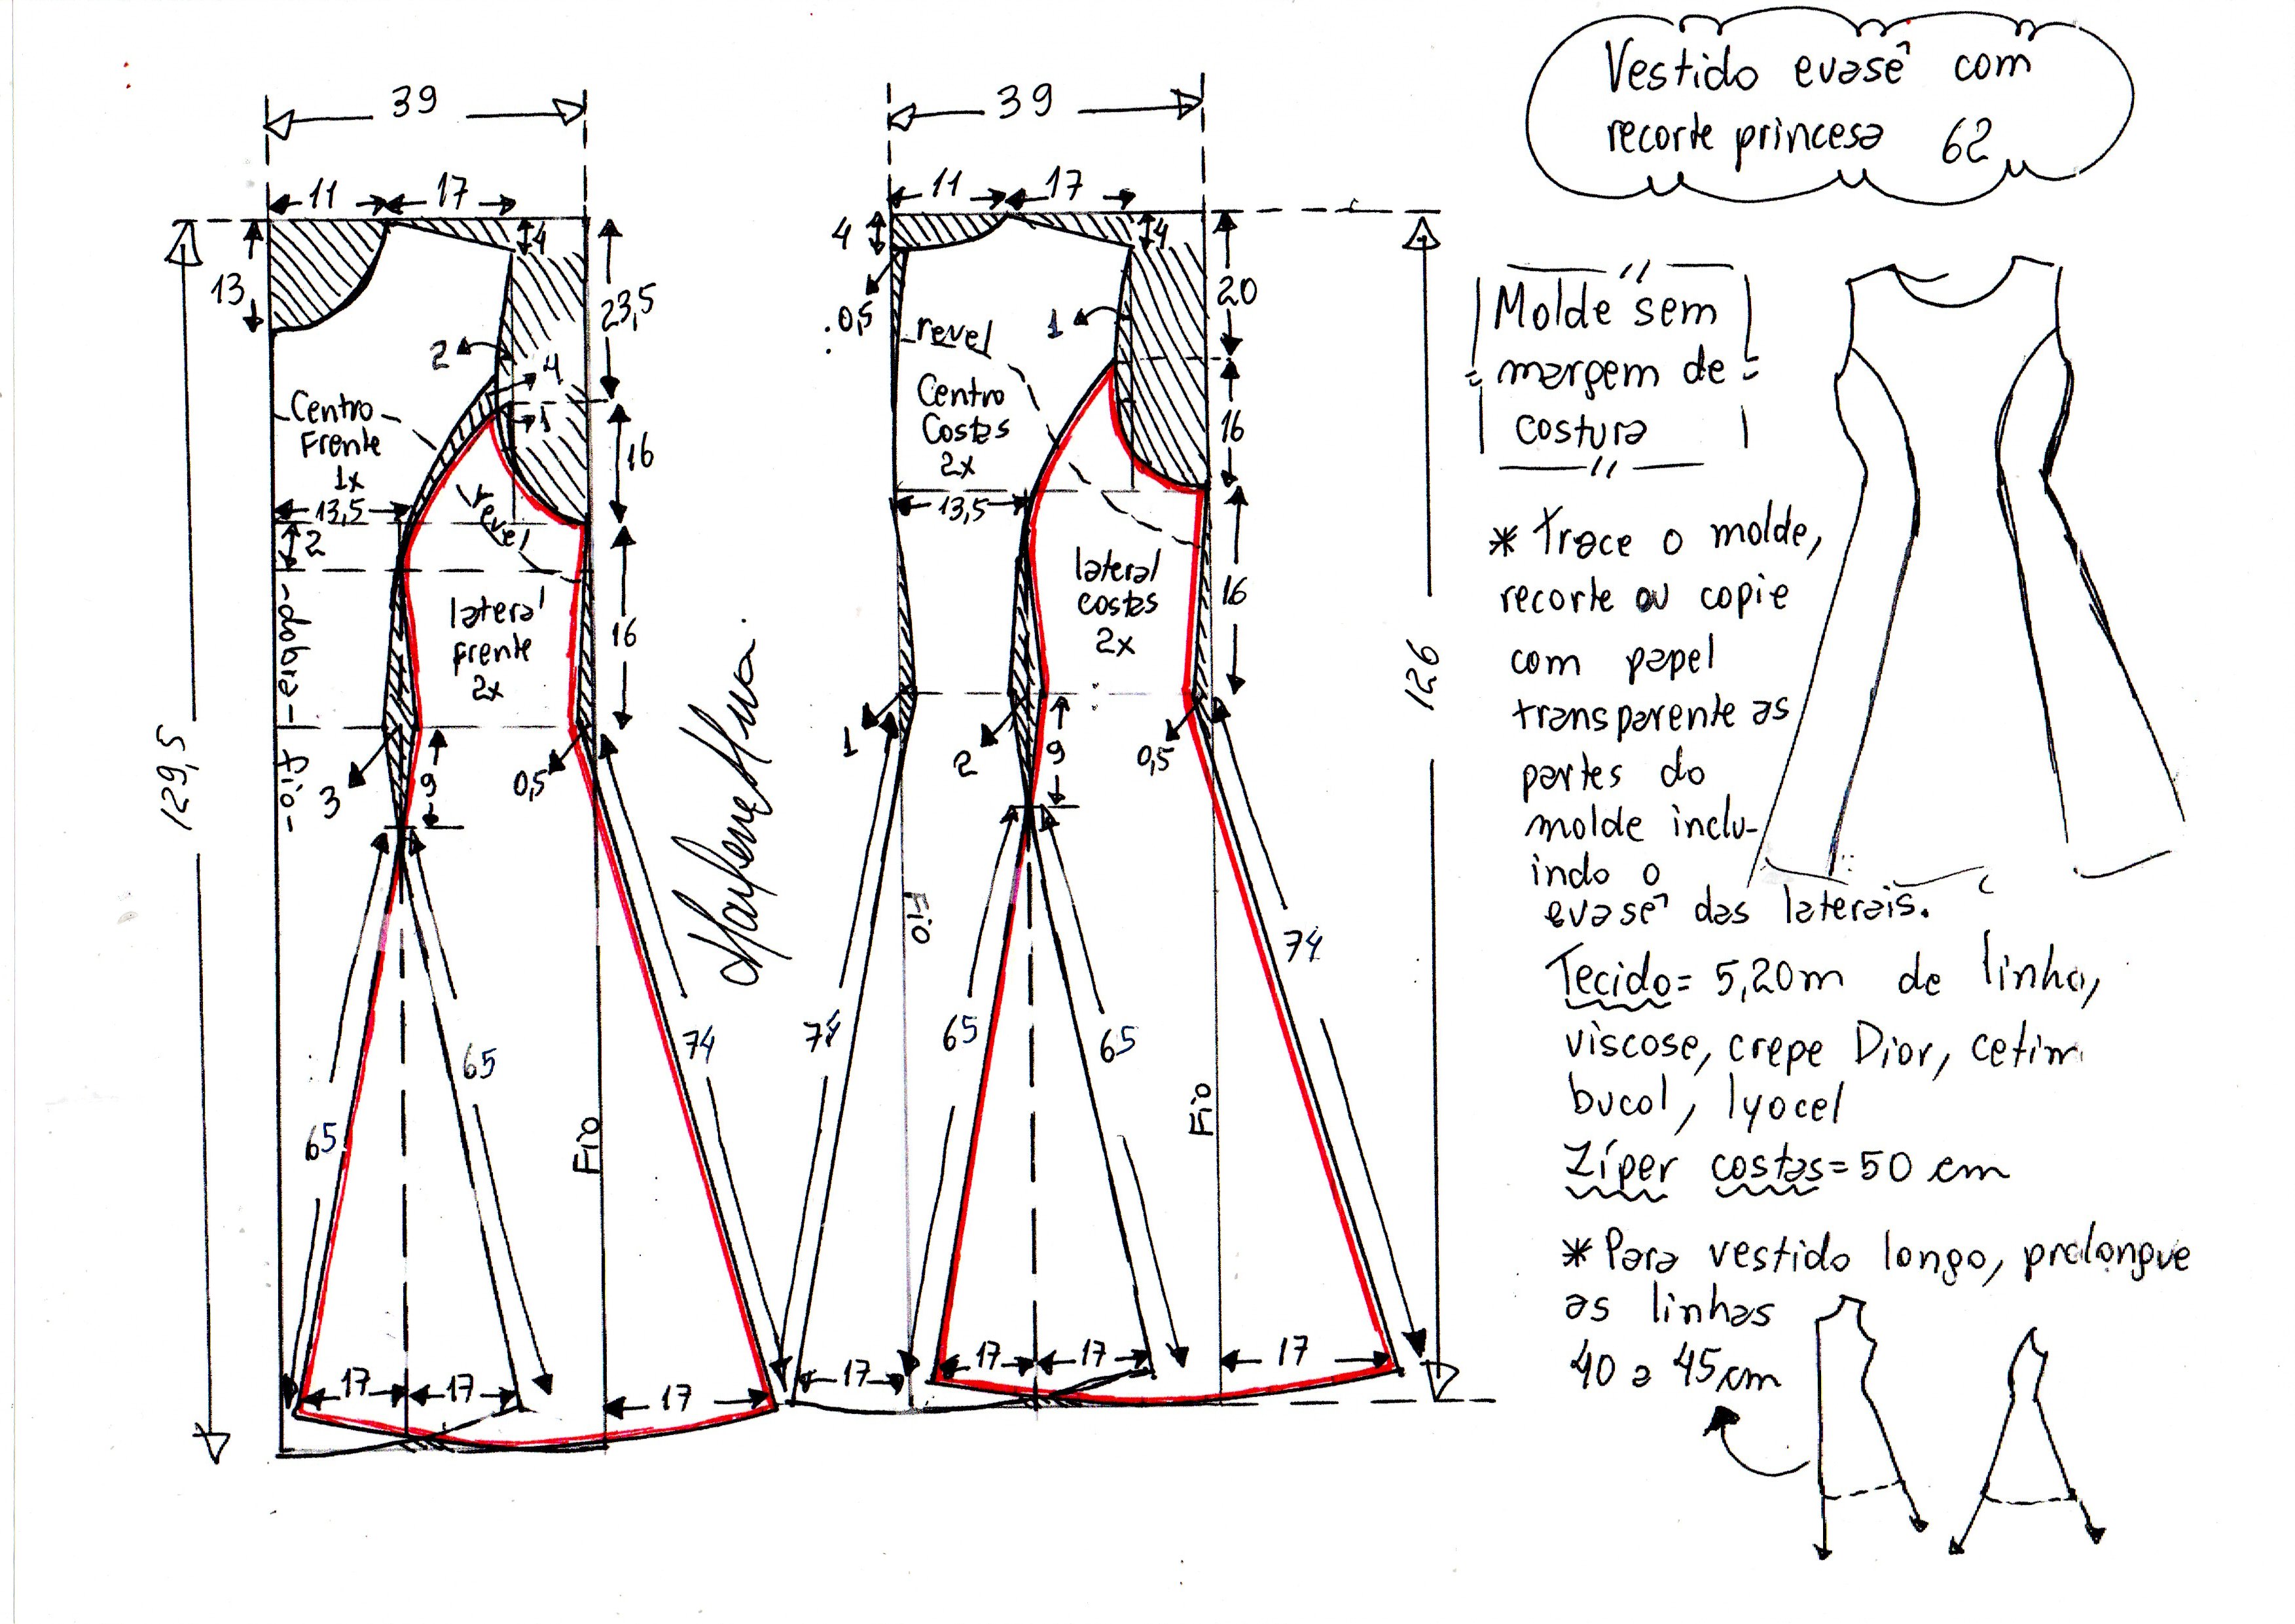 Vestido evasê com
recorte princesa 62
39
11 17
13
4
23,5
2
4
1
Centro
Frente
1x
16
13,5
2
revel
lateral
frente
2x
16
dobra
fio
3
9
0,5
129,5
65
65
74
Fio
17 17 17
Marlene Mukai.
39
11 17
4
4
0,5
revel
1
20
Centro
Costas
2x
16
13,5
lateral
costas
2x
16
1
2
9
0,5
126
Fio
74
65
65
74
Fio
17 17 17 17
Molde sem
margem de
costura
* Trace o molde,
recorte ou copie
com papel
transparente as
partes do
molde inclu-
indo o
evasê das laterais.
Tecido= 5,20m de linho,
viscose, crepe Dior, cetim
bucol, lyocel
Zíper costas=50 cm
*Para vestido longo, prolongue
as linhas
40 a 45cm